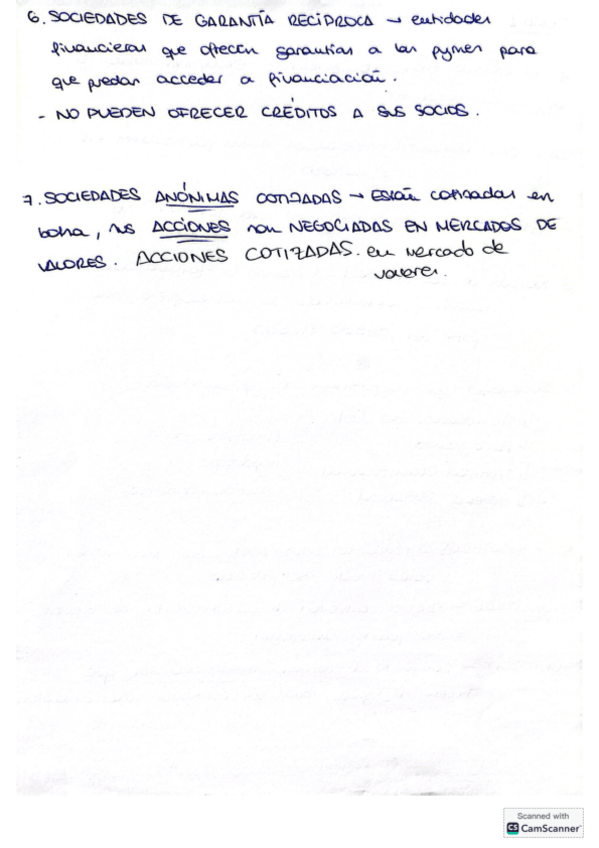 6. SOCIEDADES DE GARANTÍA RECÍPROCA → entidades
financieras que ofrecen garantías a las pymes para
que puedan acceder a financiación.
- NO PUEDEN OFRECER CRÉDITOS A SUS SOCIOS.
7. SOCIEDADES ANÓNIMAS COTIZADAS → Están cotizadas en
bolsa, sus ACCIONES son NEGOCIADAS EN MERCADOS DE
VALORES. ACCIONES COTIZADAS. en mercado de
valores.
Scanned with
CS CamScanner